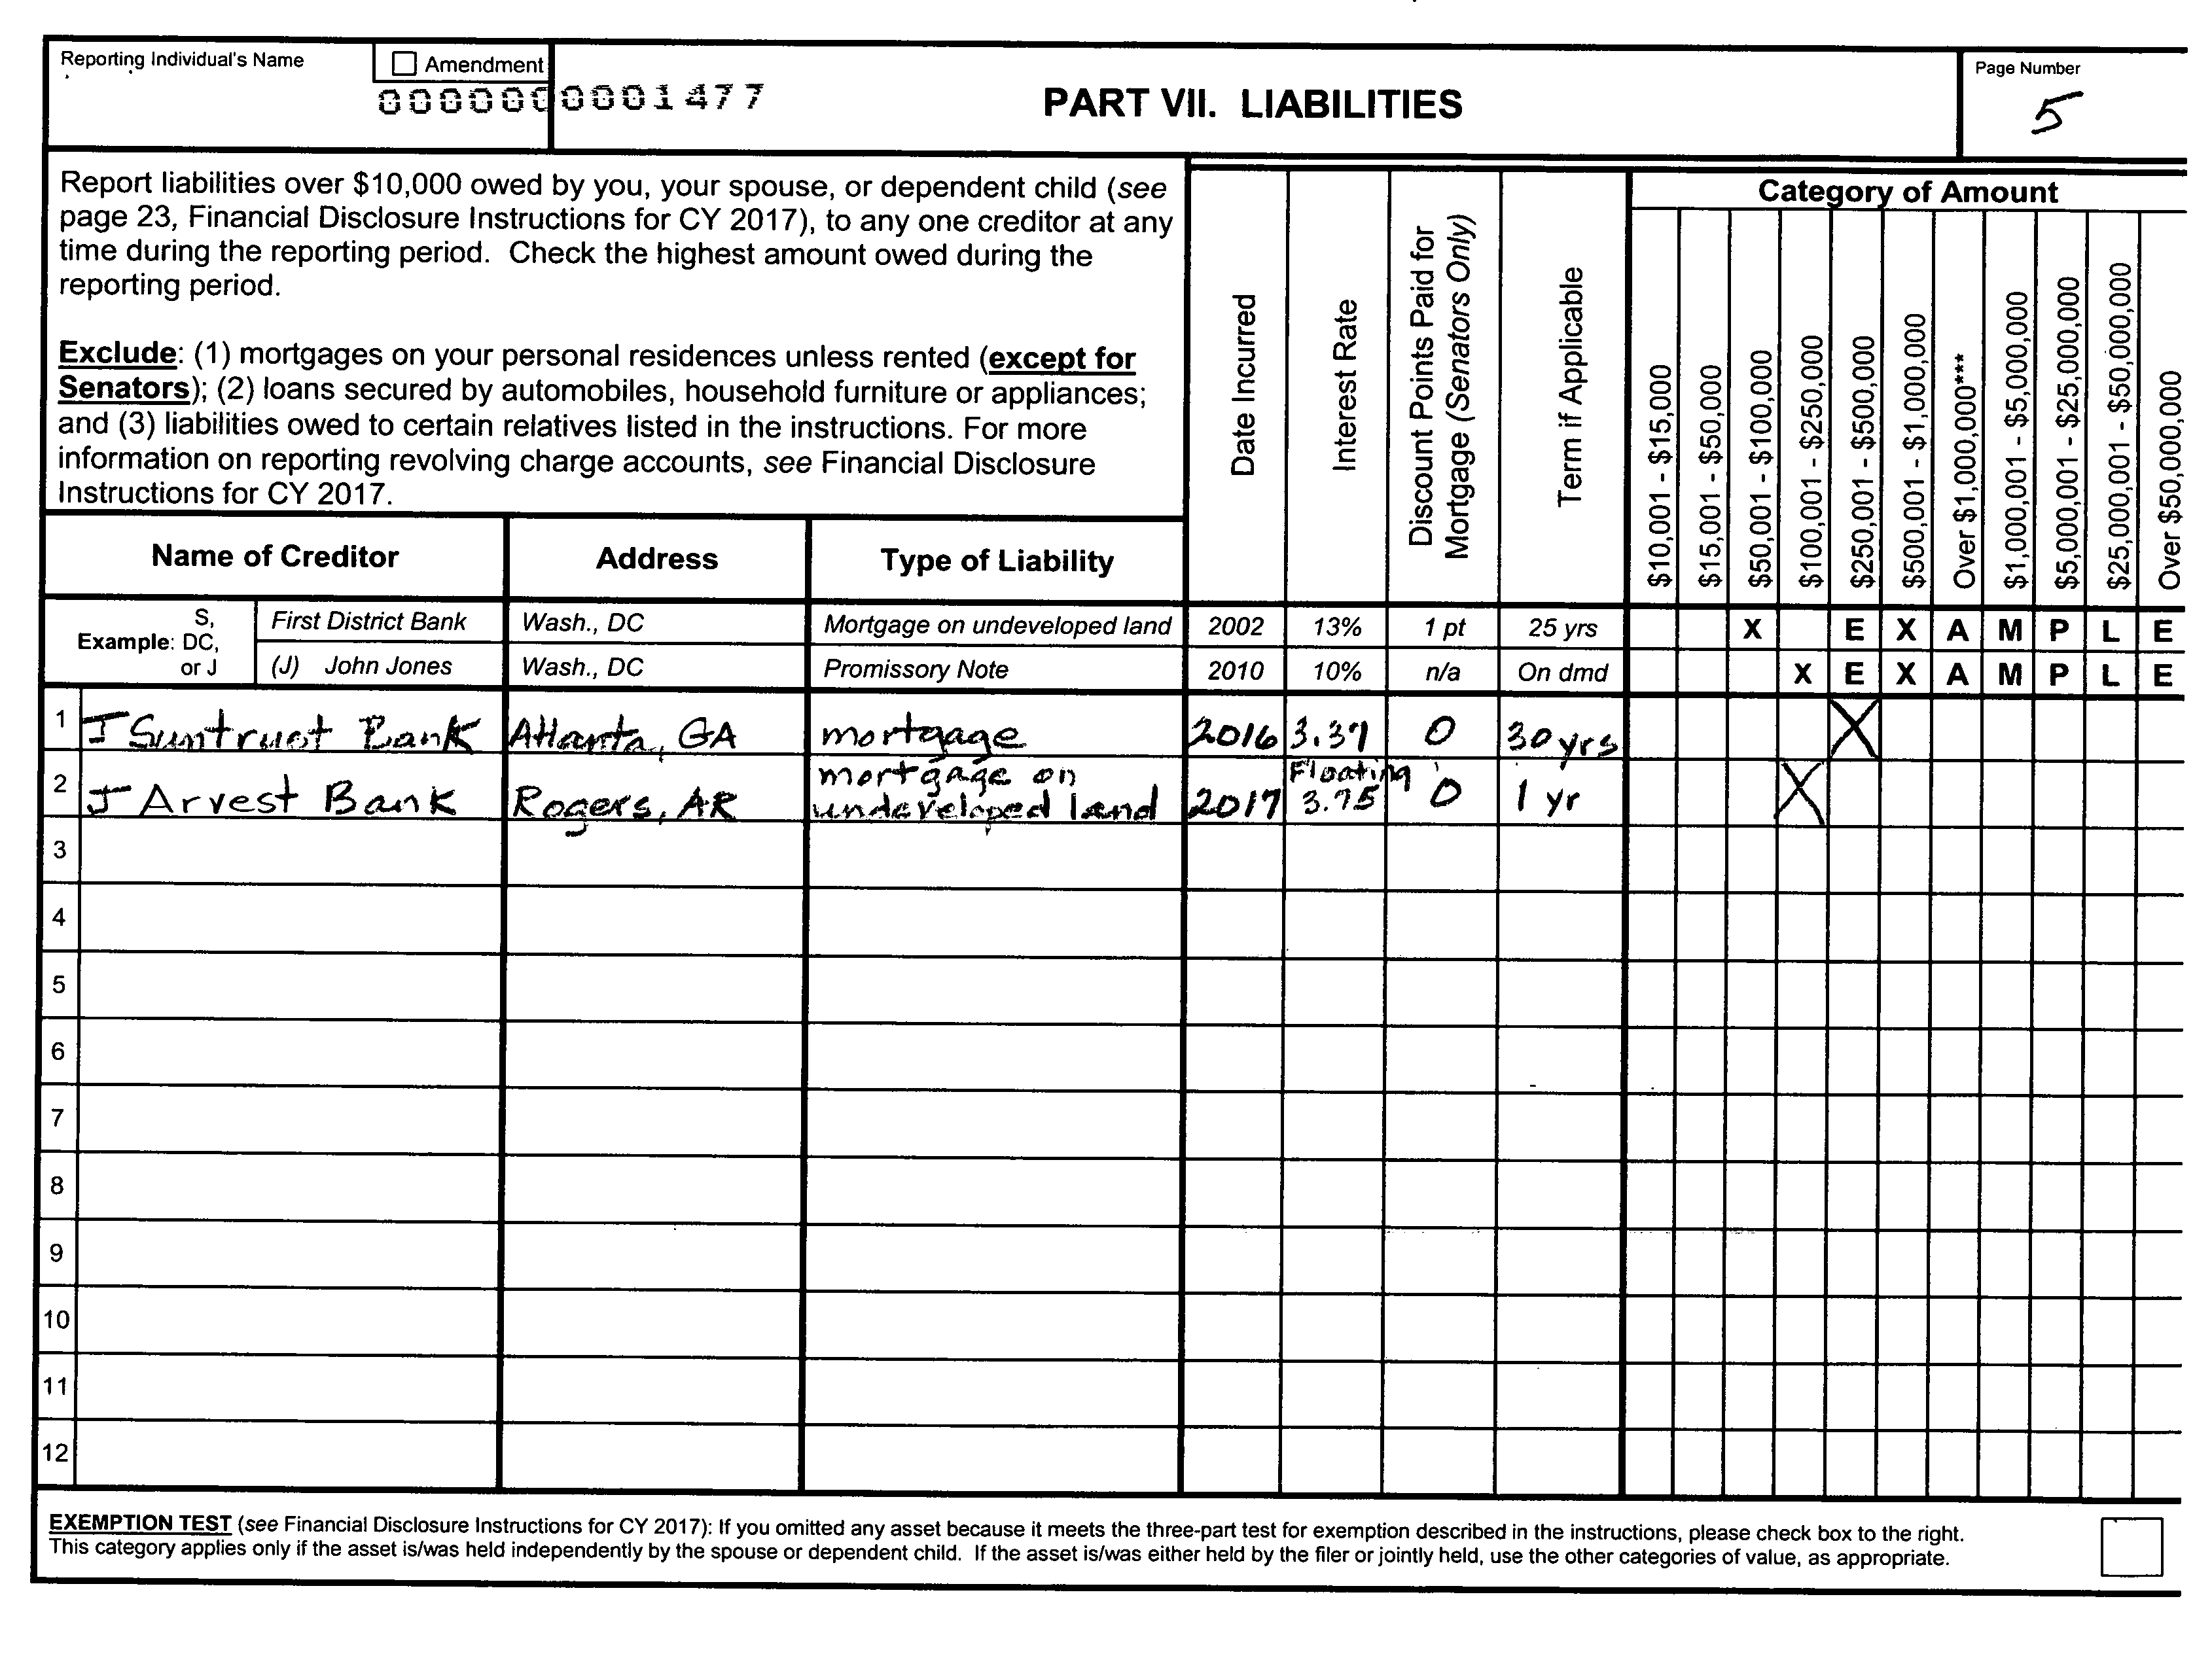 Reporting Individual's Name
☐ Amendment
0000000001477
PART VII. LIABILITIES
Page Number
5
Report liabilities over $10,000 owed by you, your spouse, or dependent child (see
page 23, Financial Disclosure Instructions for CY 2017), to any one creditor at any
time during the reporting period. Check the highest amount owed during the
reporting period.
Exclude: (1) mortgages on your personal residences unless rented (except for
Senators); (2) loans secured by automobiles, household furniture or appliances;
and (3) liabilities owed to certain relatives listed in the instructions. For more
information on reporting revolving charge accounts, see Financial Disclosure
Instructions for CY 2017.
Date Incurred
Interest Rate
Discount Points Paid for
Mortgage (Senators Only)
Term if Applicable
Category of Amount
$10,001 - $15,000
$15,001 - $50,000
$50,001 - $100,000
$100,001 - $250,000
$250,001 - $500,000
$500,001 - $1,000,000
Over $1,000,000***
$1,000,001 - $5,000,000
$5,000,001 - $25,000,000
$25,000,001 - $50,000,000
Over $50,000,000
Name of Creditor Address Type of Liability
Example: S,
DC,
or J
First District Bank Wash., DC Mortgage on undeveloped land 2002 13% 1 pt 25 yrs X E X A M P L E
(J) John Jones Wash., DC Promissory Note 2010 10% n/a On dmd X E X A M P L E
1 J Suntrust Bank Atlanta, GA mortgage 2016 3.37 0 30 yrs X
2 J Arvest Bank Rogers, AR mortgage on
undeveloped land 2017 Floating
3.75 0 1 yr X
3
4
5
6
7
8
9
10
11
12
EXEMPTION TEST (see Financial Disclosure Instructions for CY 2017): If you omitted any asset because it meets the three-part test for exemption described in the instructions, please check box to the right.
This category applies only if the asset is/was held independently by the spouse or dependent child. If the asset is/was either held by the filer or jointly held, use the other categories of value, as appropriate.